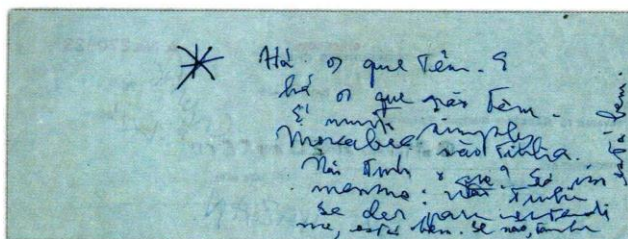 Há os que têm. E
há os que não têm.
É muito simples:
Macabea não tinha.
Não tinha o que? Só isso
mesmo: não tinha.
Se der para me entende
rem, está bem. Se não, também
está bem.